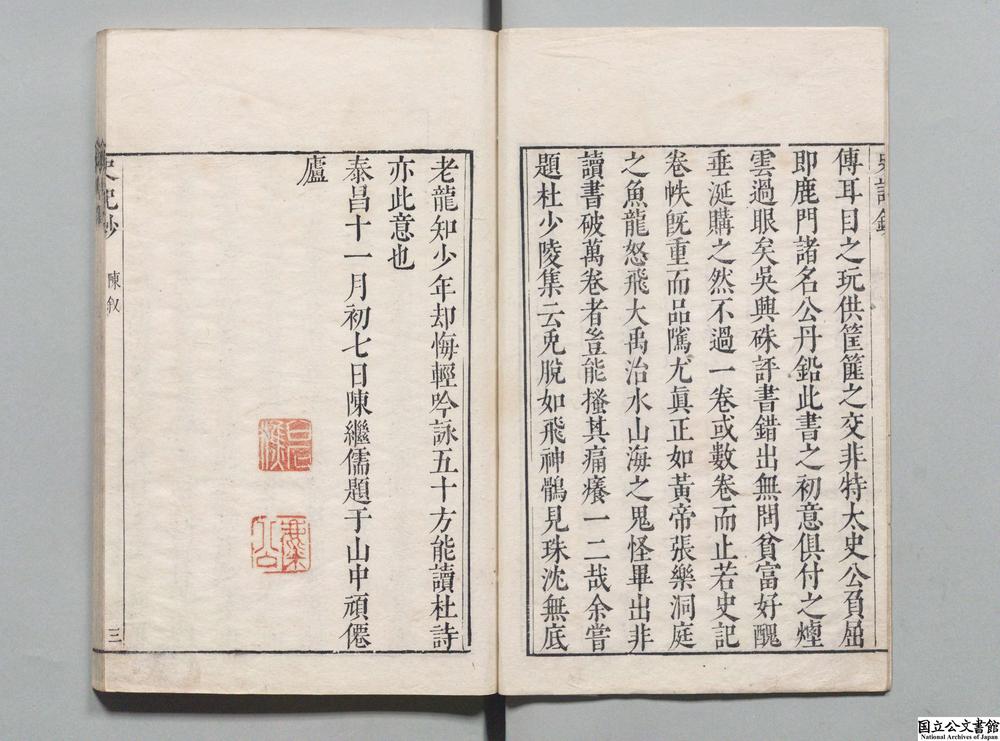 傳耳目之玩供筐篚之交非特太史公負屈
即鹿門諸名公丹鉛此書之初意俱付之煙
雲過眼矣吳興硃評書錯出無問貧富好醜
垂涎購之然不過一卷或數卷而止若史記
卷帙旣重而品隲尤眞正如黃帝張樂洞庭
之魚龍怒飛大禹治水山海之鬼怪畢出非
讀書破萬卷者豈能搔其痛癢一二哉余嘗
題杜少陵集云兎脫如飛神鶻見珠沈無底
老龍知少年却悔輕吟詠五十方能讀杜詩
亦此意也
泰昌十一月初七日陳繼儒題于山中頑僊
廬
史記鈔
陳叙
三
国立公文書館
National Archives of Japan